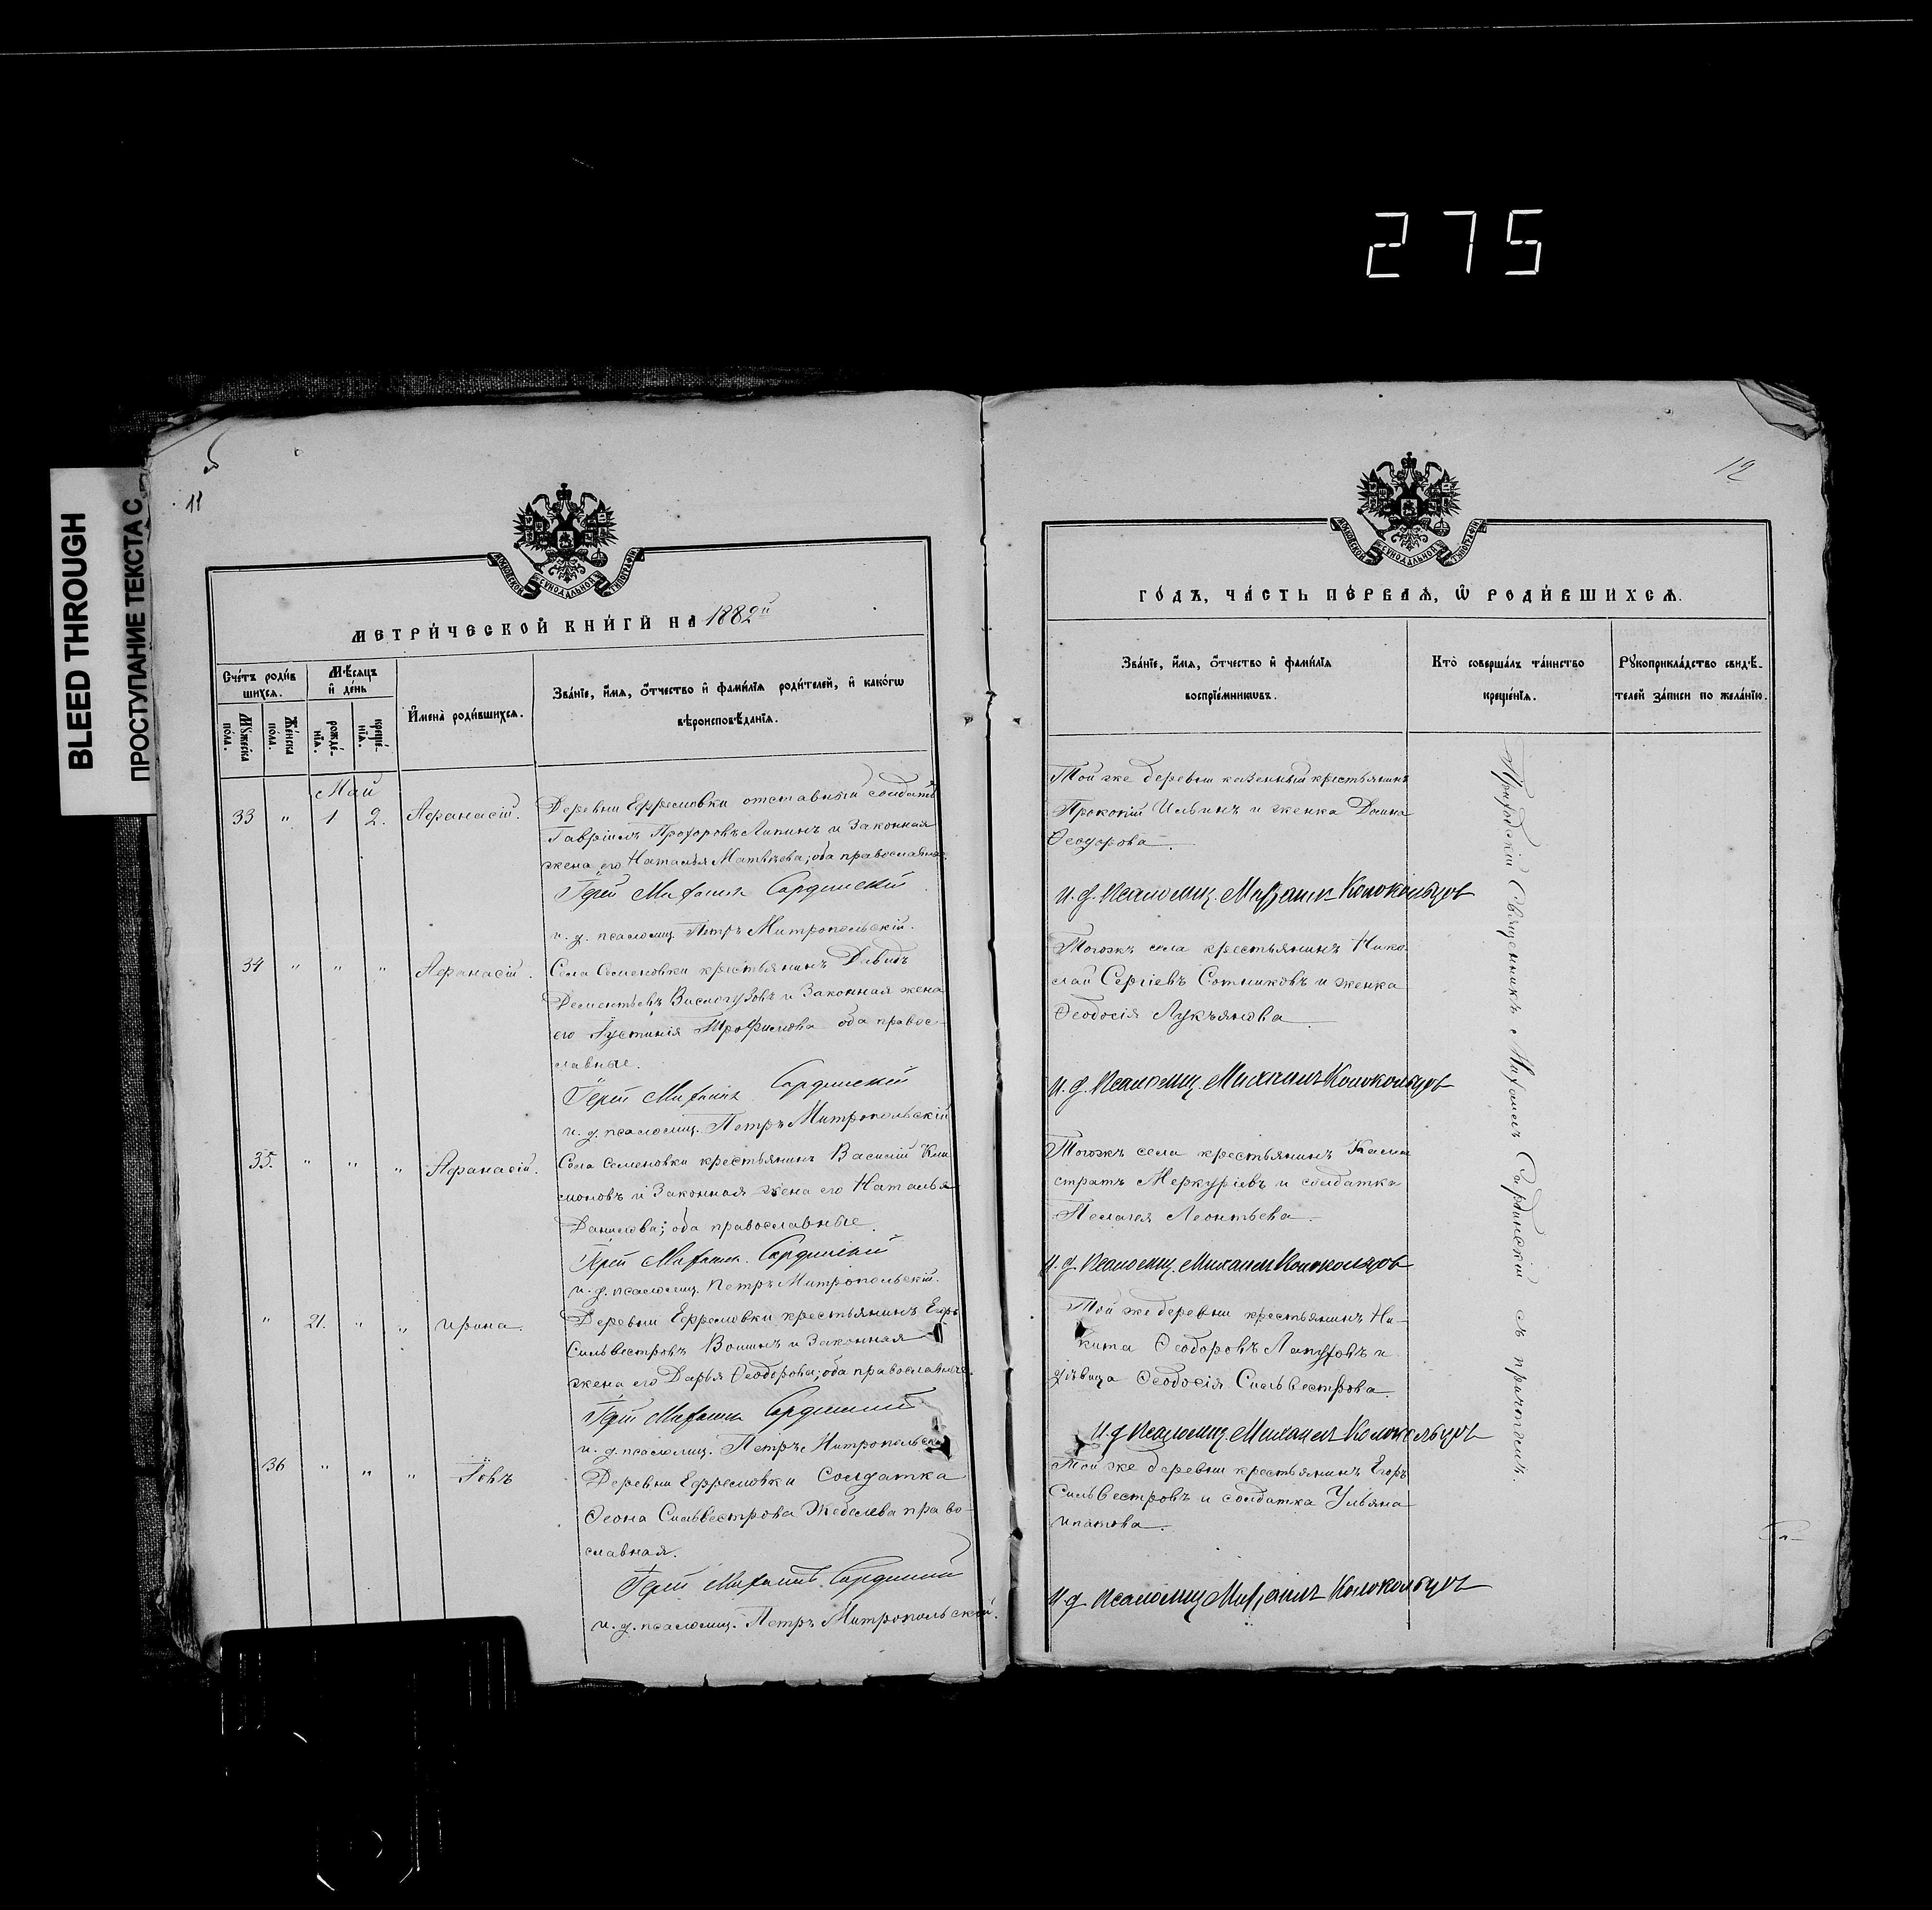 275
BLEED THROUGH
ПРОСТУПАНИЕ ТЕКСТА С
11
МОСКОВСКОЙ СѴНОДАЛЬНОЙ ТИПОГРАФІИ
МЕТРИ́ЧЕСКОЙ КНИ́ГИ НА 1882й
Сче́тъ роди́в
шихся.
Мѣ́сяцъ
и҆ де́нь
Мꙋ́жеска
по́ла.
Же́нска
по́ла.
рожде́-
нїѧ.
креще́-
нїѧ.
И҆мена̀ роди́вшихся.
Зва́нїе, и҆́мѧ, ѻ҆́тчество и҆ фами́лїѧ роди́телей, и҆ како́гѡ
вѣроисповѣ́данїѧ.
Май
33 " 1 2. Афанасій.
Деревни Ефремовки отставный солдатъ
Гавріилъ Прохоровъ Лапинъ и законная
жена его Наталья Матвѣева; оба православные.
Іерей Михаилъ Сардинскій
и. д. псаломщ. Петръ Митропольскій.
34 " " " Афанасій.
Села Семеновки крестьянинъ Давидъ
Дементьевъ Вислогузовъ и законная жена
его Іустинія Трофимова оба правос-
лавные.
Іерей Михаилъ Сардинскій
и. д. псаломщ. Петръ Митропольскій
35. " " " Афанасій.
Села Семеновки крестьянинъ Василій Кли
моновъ и законная жена его Наталья
Данилова; оба православные.
Іерей Михаилъ Сардинскій
и. д. псаломщ. Петръ Митропольскій.
" 21. " " Ирина.
Деревни Ефремовки крестьянинъ Егоръ
Сильвестровъ Воинъ и законная
жена его Дарья Ѳеодорова; оба православные.
Іерей Михаилъ Сардинскій
и. д. псаломщ. Петръ Митропольскій
36 " " " Іовъ
Деревни Ефремовки солдатка
Ѳеона Сильвестрова Жебелева право-
славная.
Іерей Михаилъ Сардинскій
и. д. псаломщ. Петръ Митропольскій.
12
МОСКОВСКОЙ СѴНОДАЛЬНОЙ ТИПОГРАФІИ
ГО́ДЪ, ЧА́СТЬ ПЕ́РВАѦ, Ѡ҆ РОДИ́ВШИХСѦ.
Зва́нїе, и҆́мѧ, ѻ҆́тчество и҆ фами́лїѧ
воспрїе́мникѡвъ.
Кто̀ соверша́лъ та́инство
креще́нїѧ.
Рꙋкоприкла́дство свидѣ́-
телей за́писи по жела́нїю.
Той же деревни казенный крестьянинъ
Прокопій Ильинъ и женка Домна
Ѳеодорова.
и. д. псаломщ. Михаилъ Колокольцовъ
Тогожъ села крестьянинъ Нико
лай Сергіевъ Сотниковъ и женка
Ѳеодосія Лукъянова
и. д. псаломщ. Михаилъ Колокольцовъ
Тогожъ села крестьянинъ Кали
стратъ Меркуріевъ и солдатка
Пелагея Леонтьева.
и. д. псаломщ. Михаилъ Колокольцовъ
Той же деревни крестьянинъ Ни-
кита Ѳеодоровъ Лапуховъ и
дѣвица Ѳеодосія Сильвестрова
и. д псаломщ. Михаилъ Колокольцовъ
Той же деревни крестьянинъ Егоръ
Сильвестровъ и солдатка Ульяна
Ипатова.
и д псаломщ Михаилъ Колокольцовъ
Приходскій Священникъ Михаилъ Сардинскій съ причтомъ.